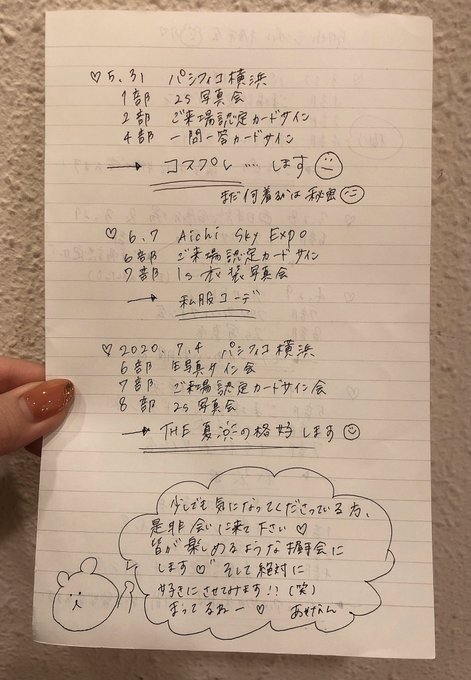 ♡5.31 パシフィコ横浜
1部 2S写真会
2部 ご来場認定カードサイン
4部 一問一答カードサイン
→ コスプレ…します
まだ何着るかは秘密
♡6.7 Aichi Sky Expo
6部 ご来場認定カードサイン
7部 1S衣装写真会
→ 私服コーデ
♡2020.7.4 パシフィコ横浜
6部 生写真サイン会
7部 ご来場認定カードサイン会
8部 2S写真会
→ THE 夏!!の格好します
少しでも気になってくださっている方、
是非会いに来て下さい♡
皆が楽しめるような握手会に
します♡ そして絶対に
好きにさせてみます!!(笑)
まってるねー ♡